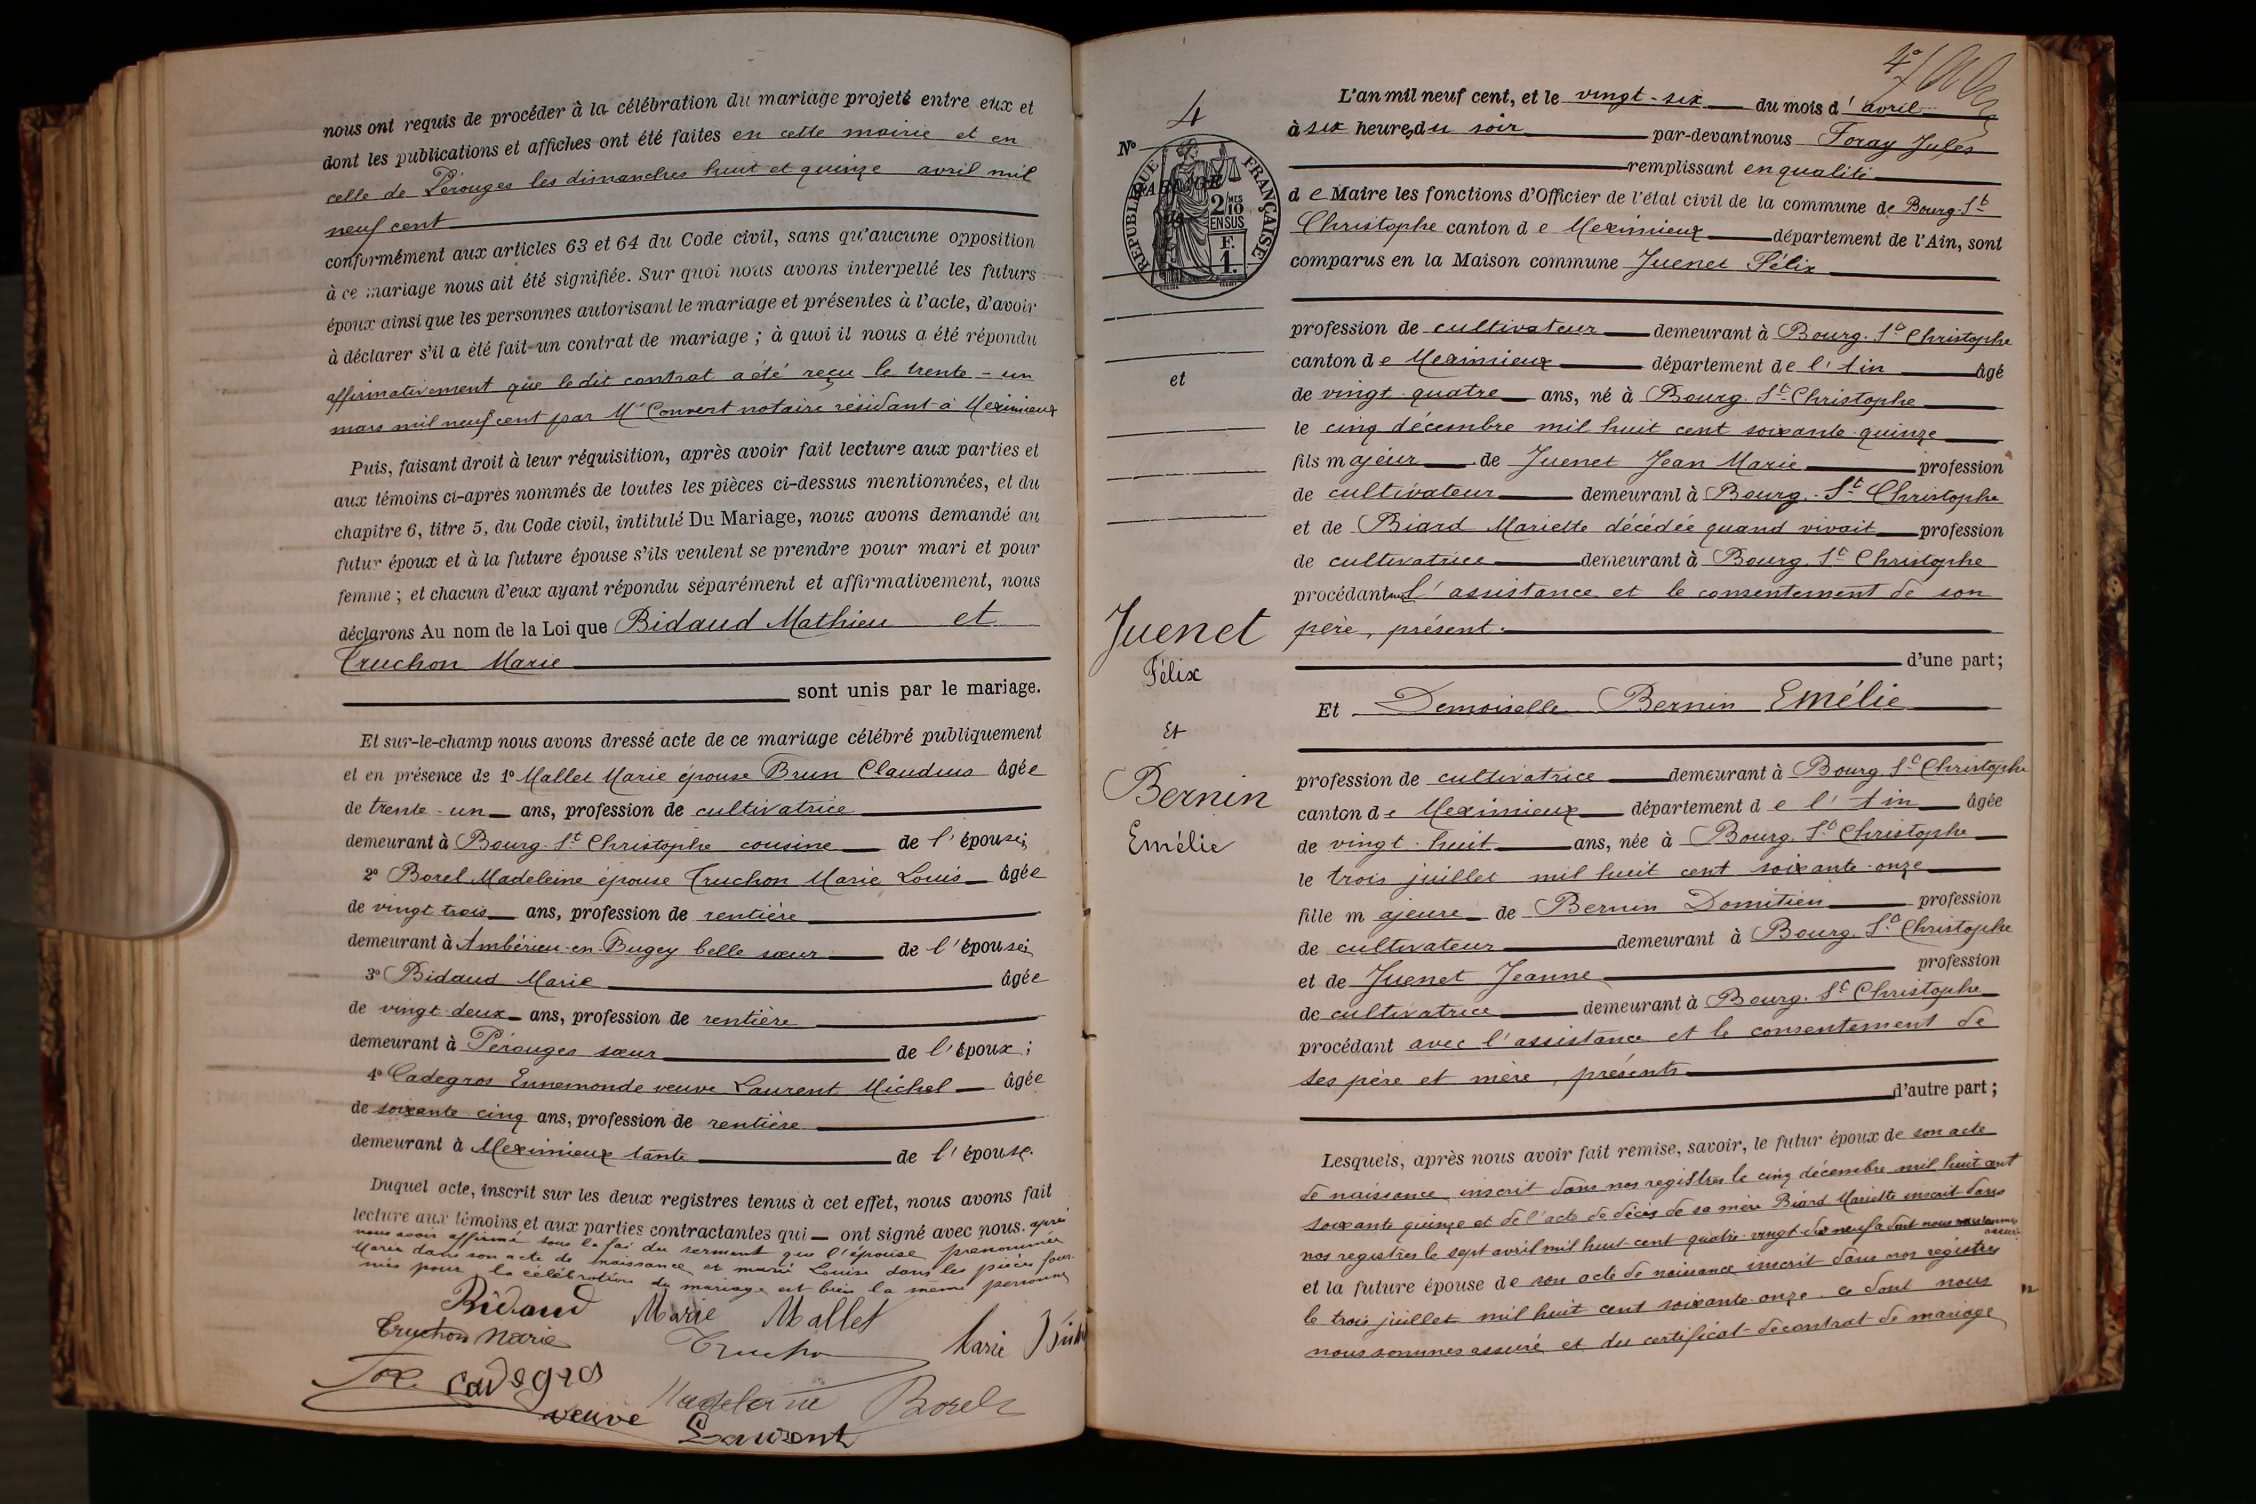 nous ont requis de procéder à la célébration du mariage projeté entre eux et
dont les publications et affiches ont été faites en cette mairie et en
celle de Pérouges les dimanches huit et quinze avril mil
neuf cent
conformément aux articles 63 et 64 du Code civil, sans qu'aucune opposition
à ce mariage nous ait été signifiée. Sur quoi nous avons interpellé les futurs
époux ainsi que les personnes autorisant le mariage et présentes à l'acte, d'avoir
à déclarer s'il a été fait un contrat de mariage ; à quoi il nous a été répondu
affirmativement que le dit contrat a été reçu le trente - un
mars mil neuf cent par Me Convert notaire résidant à Meximieux
Puis, faisant droit à leur réquisition, après avoir fait lecture aux parties et
aux témoins ci-après nommés de toutes les pièces ci-dessus mentionnées, et du
chapitre 6, titre 5, du Code civil, intitulé Du Mariage, nous avons demandé au
futur époux et à la future épouse s'ils veulent se prendre pour mari et pour
femme ; et chacun d'eux ayant répondu séparément et affirmativement, nous
déclarons Au nom de la Loi que Bidaud Mathieu et
Truchon Marie
sont unis par le mariage.
Et sur-le-champ nous avons dressé acte de ce mariage célébré publiquement
et en présence de 1º Mallet Marie épouse Brun Claudius âgée
de trente - un ans, profession de cultivatrice
demeurant à Bourg-St Christophe cousine de l'épouse;
2º Borel Madeleine épouse Truchon Marie Louis âgée
de vingt trois ans, profession de rentière
demeurant à Ambérieu-en-Bugey belle sœur de l'épouse;
3º Bidaud Marie âgée
de vingt-deux ans, profession de rentière
demeurant à Pérouges sœur de l'époux ;
4º Cadegros Ennemonde veuve Laurent Michel âgée
de soixante cinq ans, profession de rentière
demeurant à Meximieux tante de l'épouse.
Duquel acte, inscrit sur les deux registres tenus à cet effet, nous avons fait
lecture aux témoins et aux parties contractantes qui ont signé avec nous. après
nous avoir affirmé sous la foi du serment que l'épouse prénommée
Marie dans son acte de naissance et Marie Louise dans les pièces four-
nies pour la célébration du mariage est bien la même personne
Bidaud Marie Mallet
Truchon Marie Marie
Cadegros Madeleine Borel
veuve Laurent
4
No
RÉPUBLIQUE FRANÇAISE
MARIAGE
2/10 MES
EN SUS
F.
1.
et
Juenet
Félix
Et
Bernin
Emélie
L'an mil neuf cent, et le vingt-six du mois d'avril
à six heures du soir par-devant nous Foray Jules
remplissant en qualité
de Maire les fonctions d'Officier de l'état civil de la commune de Bourg-St
Christophe canton de Meximieux département de l'Ain, sont
comparus en la Maison commune Juenet Félix
profession de cultivateur demeurant à Bourg-St Christophe
canton de Meximieux département de l'Ain âgé
de vingt quatre ans, né à Bourg-St Christophe
le cinq décembre mil huit cent soixante-quinze
fils majeur de Juenet Jean Marie profession
de cultivateur demeurant à Bourg-St Christophe
et de Biard Mariette décédée quand vivait profession
de cultivatrice demeurant à Bourg-St Christophe
procédant avec l'assistance et le consentement de son
père, présent.
d'une part;
Et Demoiselle Bernin Emélie
profession de cultivatrice demeurant à Bourg-St Christophe
canton de Meximieux département de l'Ain âgée
de vingt-huit ans, née à Bourg-St Christophe
le trois juillet mil huit cent soixante-onze
fille majeure de Bernin Domitien profession
de cultivateur demeurant à Bourg-St Christophe
et de Juenet Jeanne profession
de cultivatrice demeurant à Bourg-St Christophe
procédant avec l'assistance et le consentement de
ses père et mère, présents
d'autre part ;
Lesquels, après nous avoir fait remise, savoir, le futur époux de son acte
de naissance inscrit dans nos registres le cinq décembre mil huit cent
soixante quinze et de l'acte de décès de sa mère Biard Mariette inscrit dans
nos registres le sept avril mil huit cent quatre-vingt-dix neuf ce dont nous nous sommes assuré
et la future épouse de son acte de naissance inscrit dans nos registres
le trois juillet mil huit cent soixante-onze ce dont nous
nous sommes assuré et du certificat de contrat de mariage